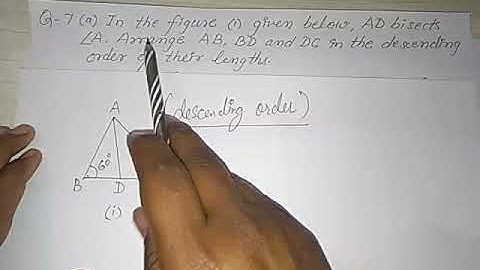 Q-7 (a) In the figure (i) given below, AD bisects
∠A. Arrange AB, BD and DC in the descending
order of their lengths.
(descending order)
A
60°
B D
(i)